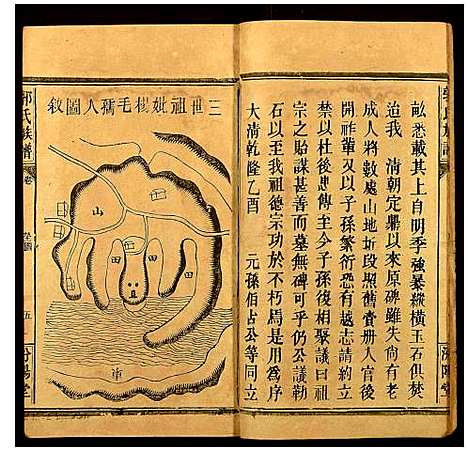 畝悉載其上自明季強暴縱橫玉石俱焚
迨我 清朝定鼎以來原碑雖失尚有老
成人將數處山地坵段照舊賣冊人官後
開祚輩又以子孫繁衍恐有越志請約立
禁以杜後患傳至今子孫後相聚議曰祖
宗之貽謀甚善而墓無碑可乎仍公議勒
石以至我祖德宗功於不朽焉是用為序
大清乾隆乙酉 元孫佰占公等同立
三世祖妣楼毛孺人圖敘
山
田
田
田
郭氏族譜
卷
五
汾陽堂